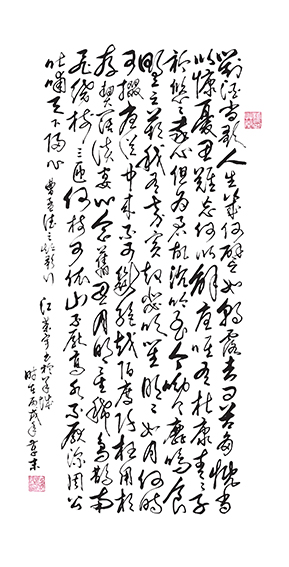 對酒當歌人生幾何譬如朝露去日苦多慨當
以慷憂思難忘何以解憂唯有杜康青々子
衿悠々我心但為君故沉吟至今呦々鹿鳴食
野之苹我有嘉賓鼓瑟吹笙明々如月何時
可掇憂從中來不可斷絕越陌度阡枉用相
存契闊談讌心念舊恩月明星稀烏鵲南
飛繞樹三匝何枝可依山不厭高水不厭深周公
吐哺天下歸心 曹孟德之短歌行
時在丙戌年